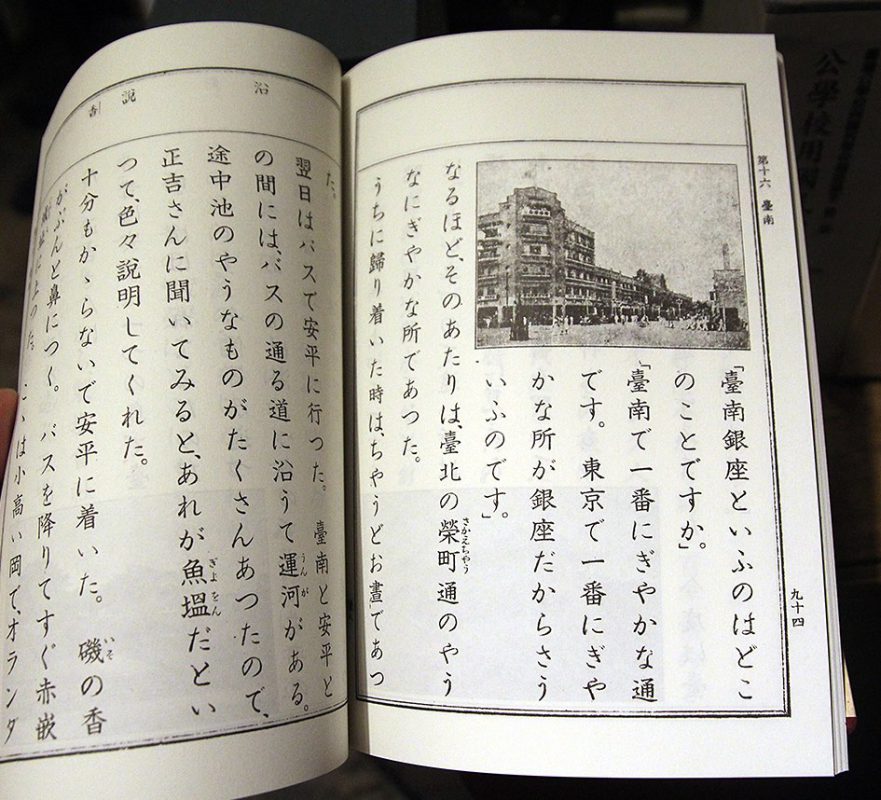 第十六 臺南
九十四
「臺南銀座といふのはどこ
のことですか。」
「臺南で一番にぎやかな通
です。東京で一番にぎや
かな所が銀座だからさう
いふのです。」
なるほど、そのあたりは、臺北の榮町通のやう
さかえちやう
なにぎやかな所であつた。
うちに歸り着いた時は、ちやうどお晝であつ
沿
説
香
た。
翌日はバスで安平に行つた。臺南と安平と
の間には、バスの通る道に沿うて運河がある。
うんが
途中池のやうなものがたくさんあつたので、
正吉さんに聞いてみると、あれが魚塭だとい
ぎよをん
つて、色々説明してくれた。
十分もかゝらないで安平に着いた。磯の香
いそ
がぷんと鼻につく。バスを降りてすぐ赤嵌
に上つた。こゝは小高い岡で、オランダ
公學校用